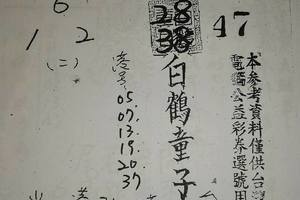 6
1 2
(二)
28
38
47
港号
05
07
13
19
20
37
白鶴童子
本參考資料僅供台灣
電腦公益彩券選號用